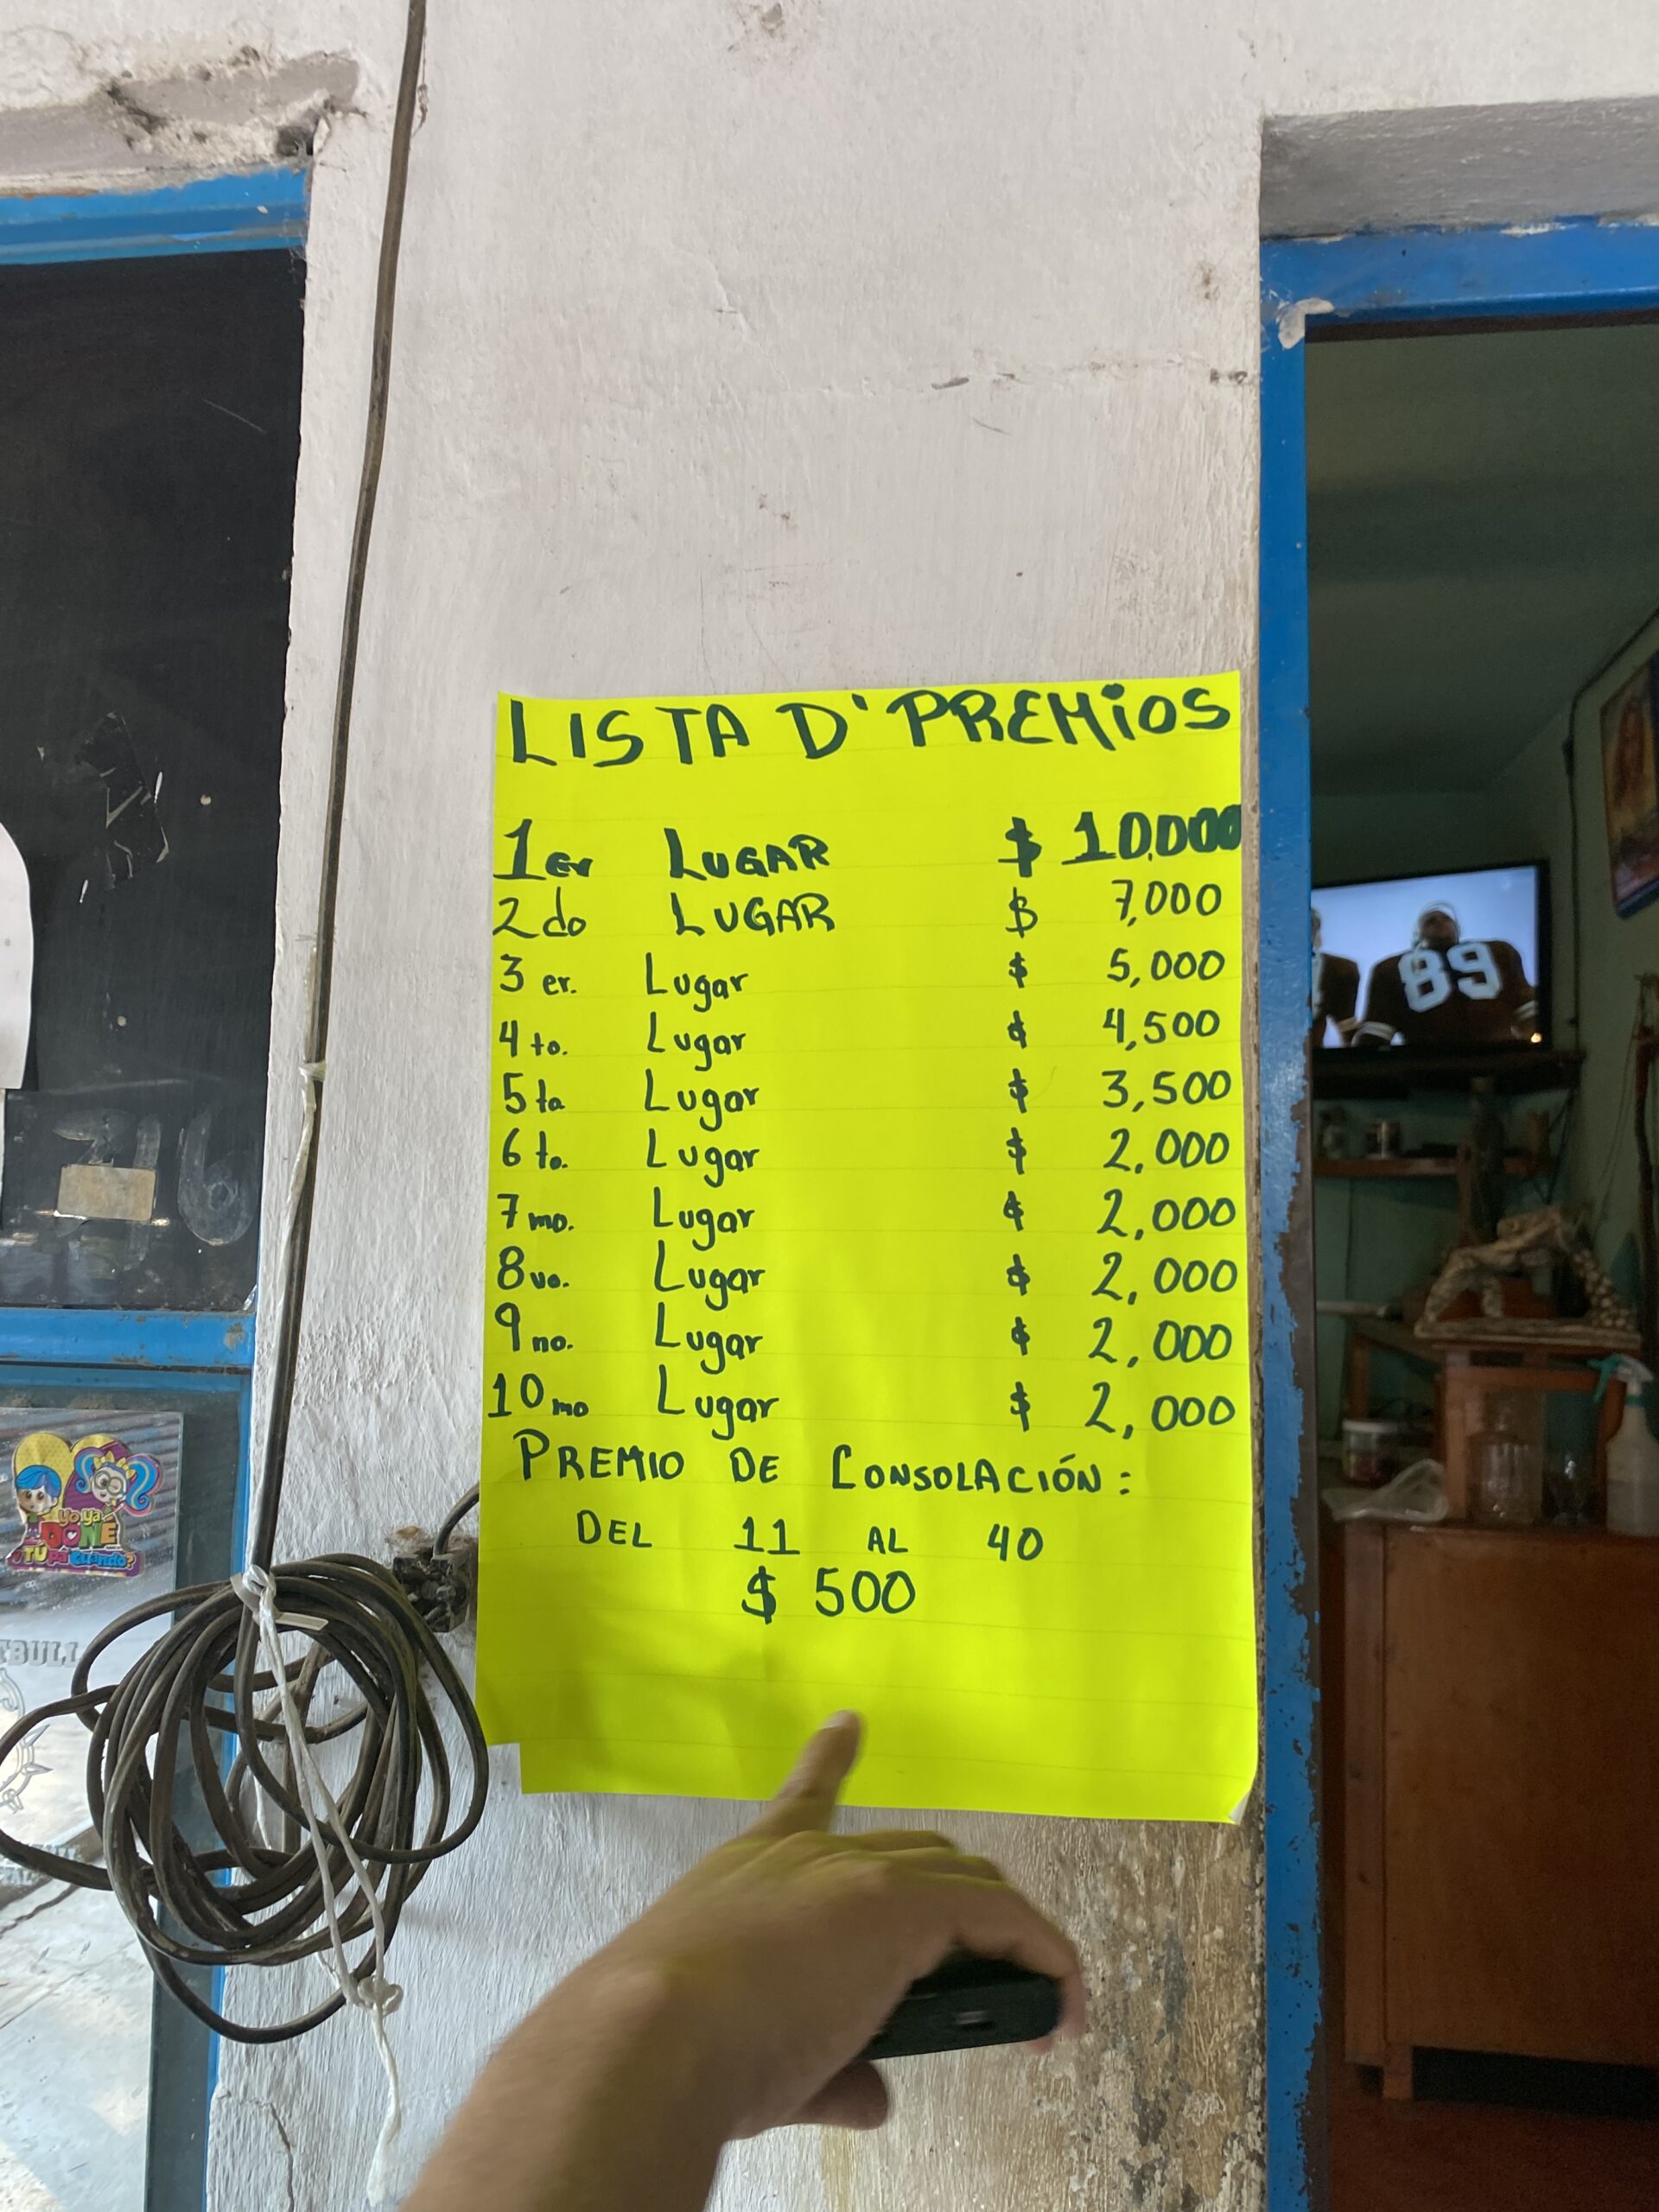 LISTA D'PREMiOS
1er LUGAR $ 10,000
2do LUGAR $ 7,000
3er. Lugar $ 5,000
4to. Lugar $ 4,500
5ta Lugar $ 3,500
6to. Lugar $ 2,000
7mo. Lugar $ 2,000
8vo. Lugar $ 2,000
9no. Lugar $ 2,000
10mo Lugar $ 2,000
PREMIO DE CONSOLACIÓN:
DEL 11 AL 40
$ 500
89
yo ya
DONÉ
¿TÚ pa' cuándo?